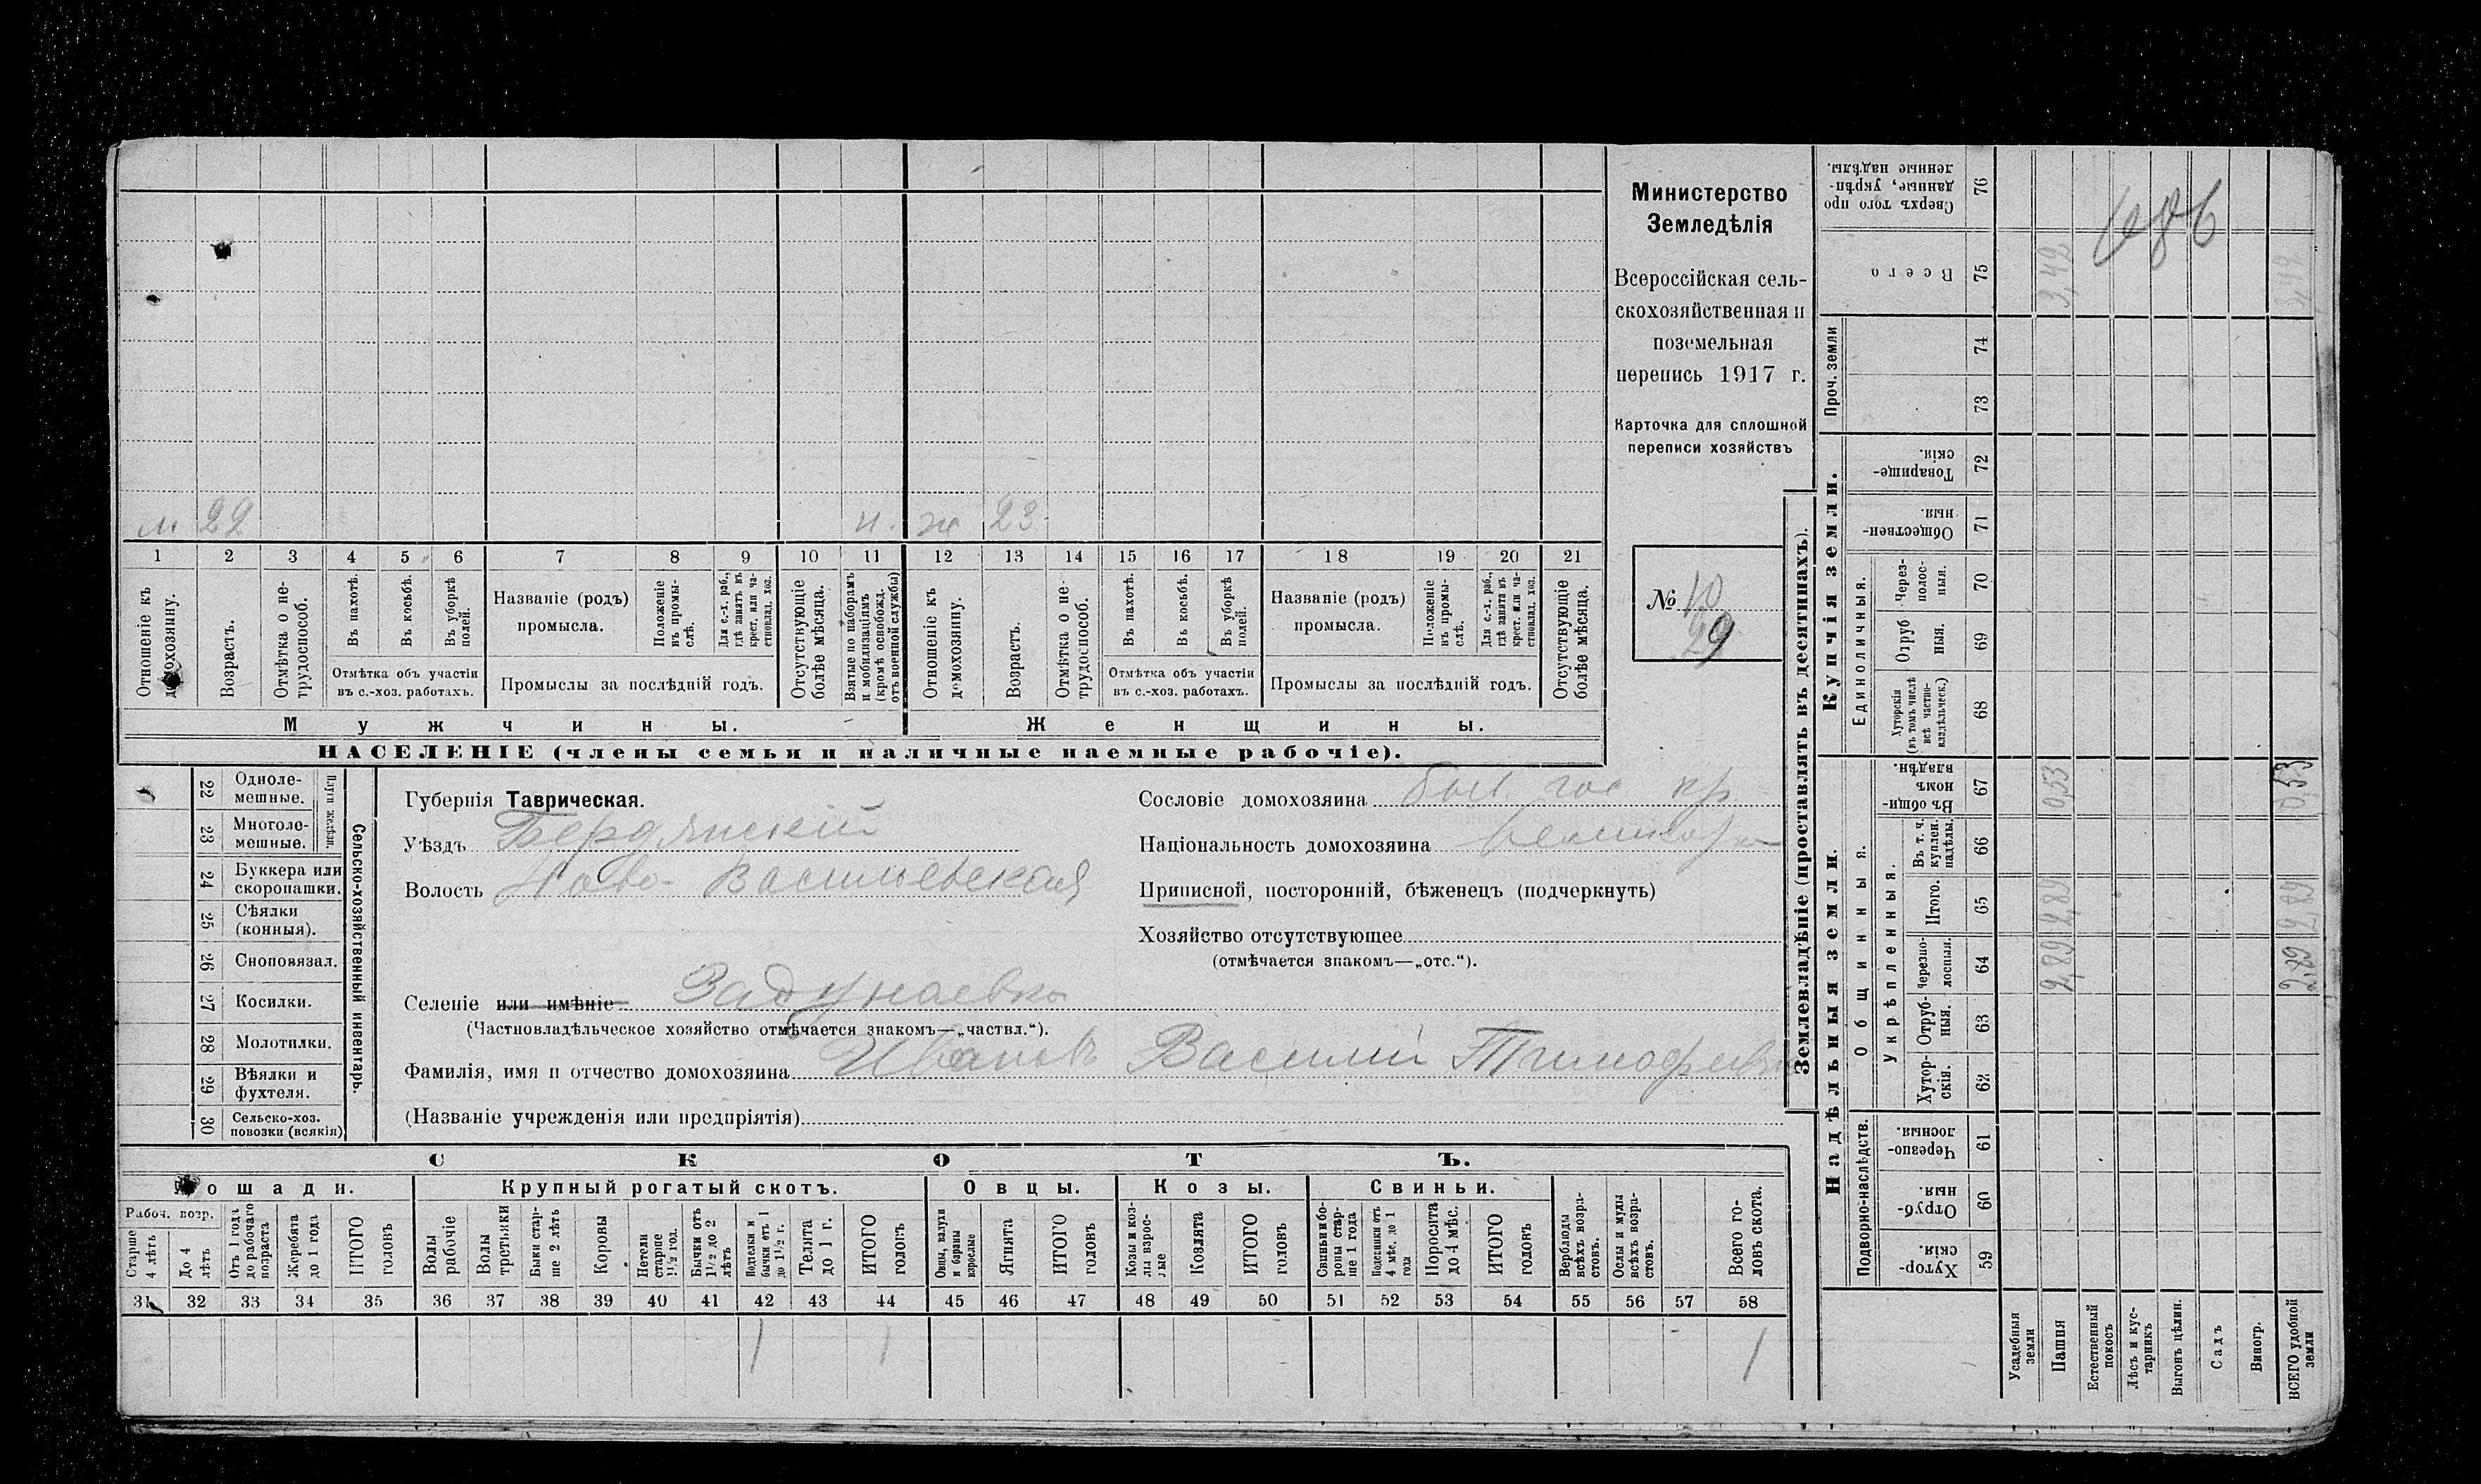 м 22 н. ж 23
1 2 3 4 5 6 7 8 9 10 11 12 13 14 15 16 17 18 19 20 21
Отношеніе къ домохозяину.
Возрастъ.
Отмѣтка о не-
трудоспособ.
Въ пахотѣ.
Въ косьбѣ.
Въ уборкѣ полей.
Отмѣтка объ участіи
въ с.-хоз. работахъ.
Названіе (родъ)
промысла.
Положеніе
въ промы-
слѣ.
Для с.-х. раб.,
гдѣ занятъ въ
крест. или ча-
стновлад. хоз.
Промыслы за послѣдній годъ.
Отсутствующіе
болѣе мѣсяца.
Взятые по наборамъ
и мобилизаціямъ
(кромѣ освобожд.
отъ военной службы)
Отношеніе къ
домохозяину.
Возрастъ.
Отмѣтка о не-
трудоспособ.
Въ пахотѣ.
Въ косьбѣ.
Въ уборкѣ
полей.
Отмѣтка объ участіи
въ с.-хоз. работахъ.
Названіе (родъ)
промысла.
Положеніе
въ промы-
слѣ.
Для с.-х. раб.,
гдѣ занята въ
крест. или ча-
стновлад. хоз.
Промыслы за послѣдній годъ.
Отсутствующіе
болѣе мѣсяца.
Мужчины.
Женщины.
НАСЕЛЕНІЕ (члены семьи и наличные наемные рабочіе).
Министерство
Земледѣлія
Всероссійская сель-
скохозяйственная и
поземельная
перепись 1917 г.
Карточка для сплошной
переписи хозяйствъ
№ 10
29
22 Одноле-
мешные.
23 Многоле-
мешные.
Плуги желѣзн.
24 Буккера или
скоропашки.
25 Сѣялки
(конныя).
26 Сноповязал.
27 Косилки.
28 Молотилки.
29 Вѣялки и
фухтеля.
30 Сельско-хоз.
повозки (всякія)
Сельско-хозяйственный инвентарь.
Губернія Таврическая.
Уѣздъ Бердянскій
Волость Ново-Васильевская
Селеніе или имѣніе Задунаевка
(Частновладѣльческое хозяйство отмѣчается знакомъ—„частвл.“).
Фамилія, имя и отчество домохозяина Ивановъ Василій Тимофеев
(Названіе учрежденія или предпріятія)
Сословіе домохозяина быв. гос кр.
Національность домохозяина великор
Приписной, посторонній, бѣженец (подчеркнуть)
Хозяйство отсутствующее
(отмѣчается знакомъ—„отс.“).
СКОТЪ.
Лошади.
Крупный рогатый скотъ.
Овцы.
Козы.
Свиньи.
Рабоч. возр.
Старше
4 лѣтъ
До 4
лѣтъ
Отъ 1 года
до рабочаго
возраста
Жеребята
до 1 года
ИТОГО
головъ
Волы
рабочіе
Волы
третьяки
Быки стар-
ше 2 лѣтъ
Коровы
Нетели
старше
1½ год.
Бычки отъ
1½ до 2
лѣтъ
Подтелки и
бычки отъ 1
до 1½ г.
Телята
до 1 г.
ИТОГО
головъ
Овцы, валухи
и бараны
взрослые
Ягнята
ИТОГО
головъ
Козы и коз-
лы взрос-
лые
Козлята
ИТОГО
головъ
Свиньи и бо-
ровы стар-
ше 1 года
Подсвинки отъ
4 мѣс. до 1
года
Поросята
до 4 мѣс.
ИТОГО
головъ
Верблюды
всѣхъ возра-
стовъ.
Ослы и мулы
всѣхъ возра-
стовъ.
Всего го-
ловъ скота.
31 32 33 34 35 36 37 38 39 40 41 42 43 44 45 46 47 48 49 50 51 52 53 54 55 56 57 58
1 1 1
Землевладѣніе (проставлять въ десятинахъ).
Купчія земли.
Надѣльныя земли.
Проч. земли
Единоличныя.
Общинныя.
Укрѣпленныя.
Подворно-наслѣдств.
Сверхъ того про
данные, укрѣп-
ленные надѣлы. 76
Всего 75 3,42 3,42
74
73
Товарище-
скія. 72
Обществен-
ныя. 71
Через-
полос-
ныя. 70
Отруб
ныя. 69
Хуторскія
(въ томъ числѣ
всѣ частно-
владѣльческ.) 68
Въ общи-
номъ
владѣн. 67 0,53 0,53
Въ т. ч.
куплен.
надѣлы. 66
Итого. 65 2,89 2,89
Черезпо-
лосныя. 64 2,89 2,89
Отруб-
ныя. 63
Хутор-
скія. 62
Черезпо-
лосныя. 61
Отруб-
ныя. 60
Хутор-
скія. 59
Усадебныя
земли
Пашня
Естественный
покосъ
Лѣсъ и кус-
тарникъ
Выгонъ цѣлин.
Садъ
Виногр.
ВСЕГО удобной
земли